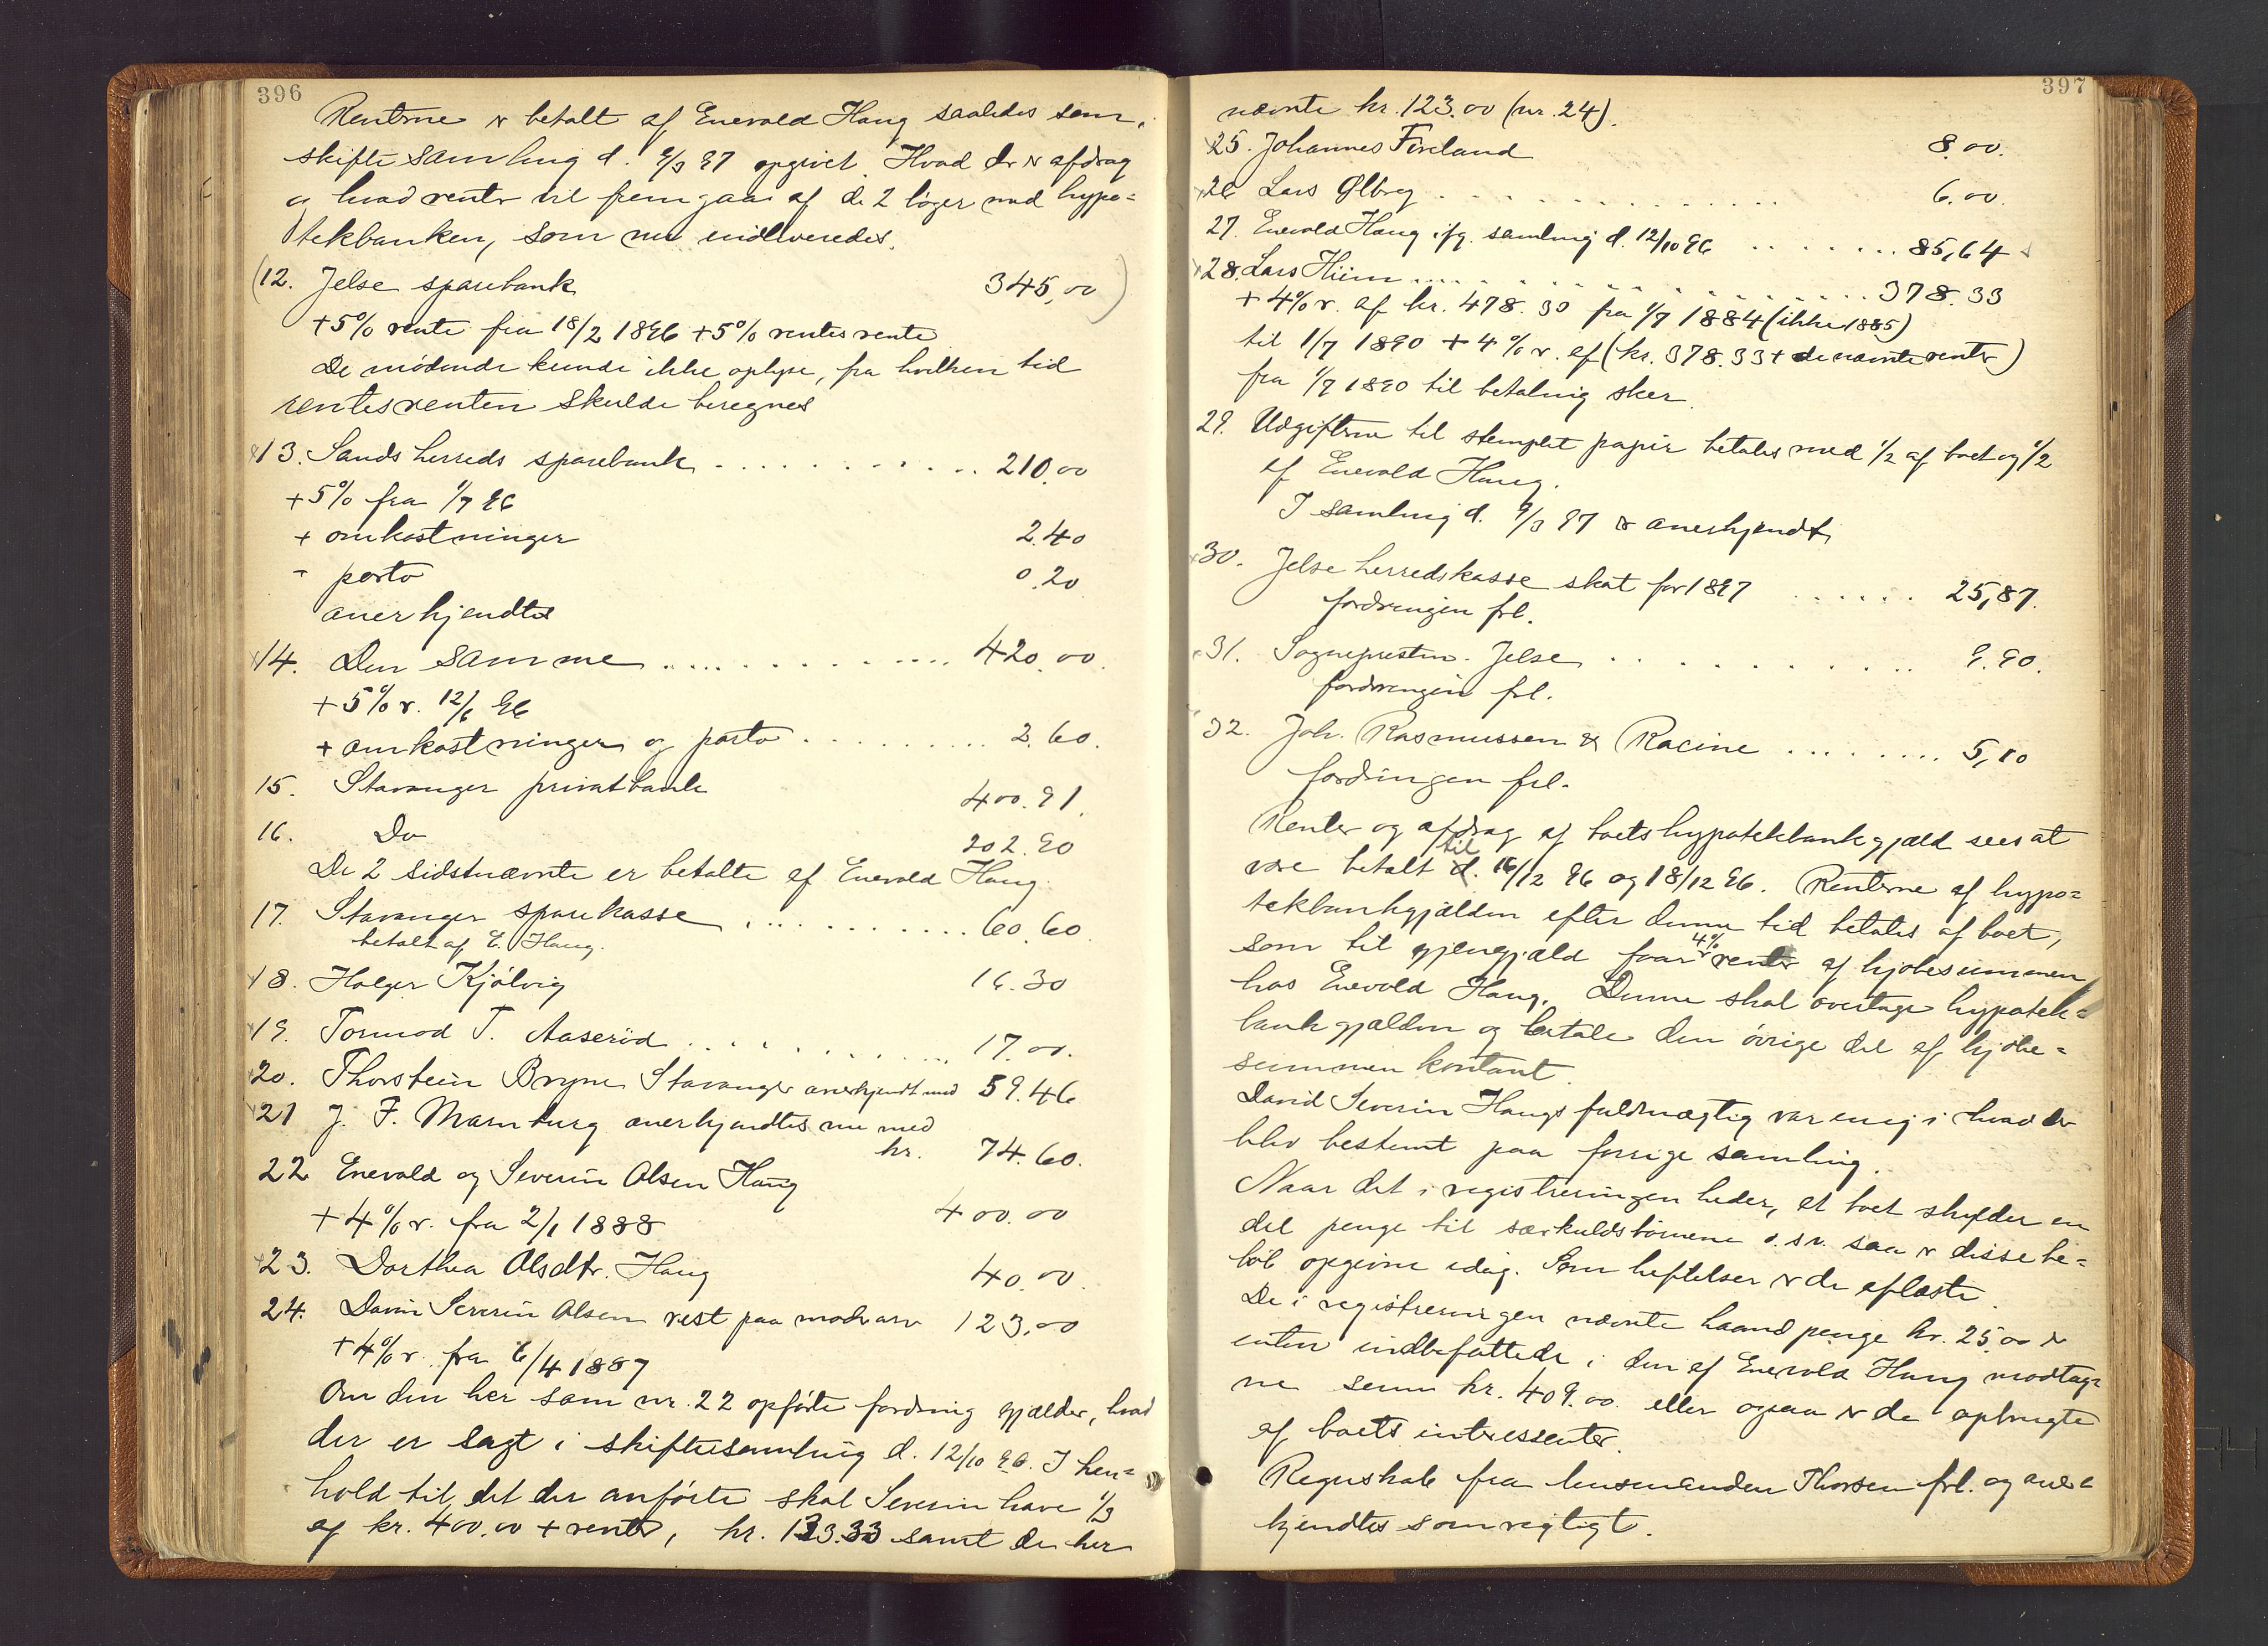 396
Renterne er betalt af Enevold Haug saaledes som i
skiftesamling d. 9/3 97 opgivet. Hvad der er afdrag
og hvad renter vil fremgaa af de 2 bøger med hypo=
tekbanken, som nu indleveredes.
(12. Jelse sparebank 345,00)
+5% rente fra 18/2 1896 +5% rentesrente
De mødende kunde ikke oplyse, fra hvilken tid
rentesrenten skulde beregnes
13. Sands herreds sparebank 210.00
+5% fra 1/7 96
+ omkostninger 2.40
" porto 0.20
anerkjendtes
14. Den samme 420.00.
+5% r. 12/6 96
+ omkostninger og porto 2.60.
15. Stavanger privatbank 400.91.
16. Do 202.90
De 2 sidstnævnte er betalte af Enevold Haug.
17. Stavanger sparekasse 60.60
betalt af E. Haug.
18. Holger Kjølvig 16.30
19. Tormod T. Aaserød 17.00.
20. Thorstein Bryne Stavanger anerkjendt med 59.46
21 J. F. Marnburg anerkjendtes nu med
kr. 74.60.
22 Enevald og Severin Olsen Haug
+4% r. fra 2/1 1888 400.00
23. Dorthea Olsdtr. Haug 40.00.
24. David Severin Olsen rest paa modrarv 123,00
+4% r. fra 6/4 1887
Om den her som nr. 22 opførte fordring gjælder, hvad
der er sagt i skiftesamling d. 12/10 96. I hen=
hold til det der anførte skal Severin have 1/3
af kr. 400.00 + renter, kr. 133.33 samt de her
397
nævnte kr. 123.00 (nr. 24).
25. Johannes Foreland 8.00.
26 Lars Ølbog 6.00.
27. Enevold Haug ifg. samling d. 12/10 96 85,64
28. Lars Hiim 378.33
+ 4% r. af kr. 478.30 fra 1/7 1884 (ikke 1885)
til 1/7 1890 + 4% r. af (kr. 378.33 + de nævnte renter)
fra 1/7 1890 til betaling sker.
29. Udgifterne til stemplet papir betales med 1/2 af boet og 1/2
af Enevold Haug.
I samling d. 9/3 97 er anerkjendt,
30. Jelse herredskasse skat for 1897 25,87.
fordringen frl.
31. Sognepresten. Jelse 9.90.
fordringen frl.
32. Joh. Rasmussen & Racine 5,10
fordringen frl.
Renter og afdrag af boets hypotekbankgjæld sees at
være betalt til 16/12 96 og 18/12 96. Renterne af hypo=
tekbankgjælden efter denne tid betales af boet,
som til gjengjæld faar 4% renter af kjøbesummen
hos Enevold Haug. Denne skal overtage hypotek=
bankgjælden og betale den øvrige del af kjøbe=
summen kontant.
David Severin Haugs fuldmægtig var enig i hvad der
blev bestemt paa forrige samling.
Naar det i registreringen heder, at boet skylder en
del penge til særkuldsbørnene o.s.v. saa er disse be=
løb opgivne idag. Som heftelser er de aflæste.
De i registreringen nævnte haandpenge kr. 25.00 er
enten indbefattede i den af Enevold Haug modtag=
ne sum kr. 409.00 eller ogsaa er de opbrugte
af boets interessenter.
Regnskab fra lensmanden Thorsen frl. og aner=
kjendtes som rigtigt.